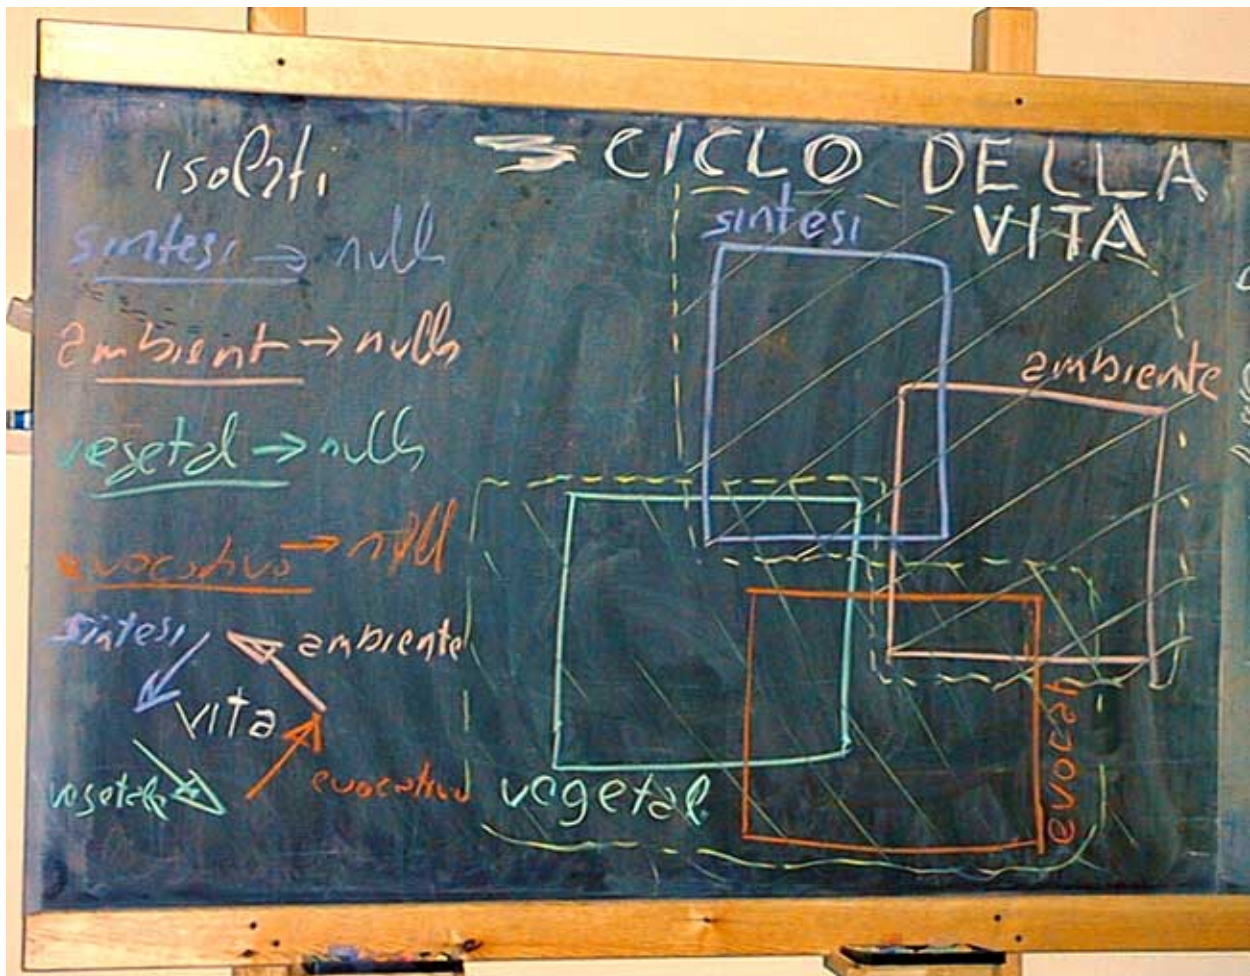 Isolati
sintesi → null
ambient → nulla
vegetal → nulla
evocativo → null
sintesi
ambiente
VITA
vegetale
evocativo
= CICLO DELLA
VITA
sintesi
ambiente
vegetal
evocat